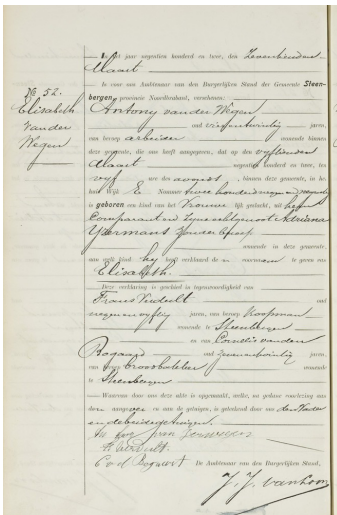 In het jaar negentien honderd en twee, den Zeventienden
Maart
is voor ons Ambtenaar van den Burgerlijken Stand der Gemeente Steen-
No 52.
Elisabeth
van der
Wegen
bergen, provincie Noordbrabant, verschenen:
Antony van der Wegen
oud vierentwintig jaren,
van beroep arbeider wonende binnen
deze gemeente, die ons heeft aangegeven, dat op den vijftienden
Maart negentien honderd en twee, ten
vijf ure des avonds, binnen deze gemeente, in de
Wijk E Nommer twee honderd
is geboren een kind van het Vrouwelijk geslacht, uit hem
Comparant en zijne echtgenoot Adriana
IJzermans zonder beroep
wonende in deze gemeente,
aan welk kind hij heeft verklaard de voornaam te geven van
Elisabeth.
Deze verklaring is geschied in tegenwoordigheid van
Frans Verdult oud
negenenvijftig jaren, van beroep Koopman
wonende te Steenbergen
en van Cornelis van den
Bogaard oud jaren,
van beroep wonende
te Steenbergen
Waarvan door ons deze akte is opgemaakt, welke, na gedane voorlezing aan
den aangever en aan de getuigen, is geteekend door ons den Vader
en de beide getuigen.
F Verdult.
C v d Bogaert
De Ambtenaar van den Burgerlijken Stand,
J. J. van Loon